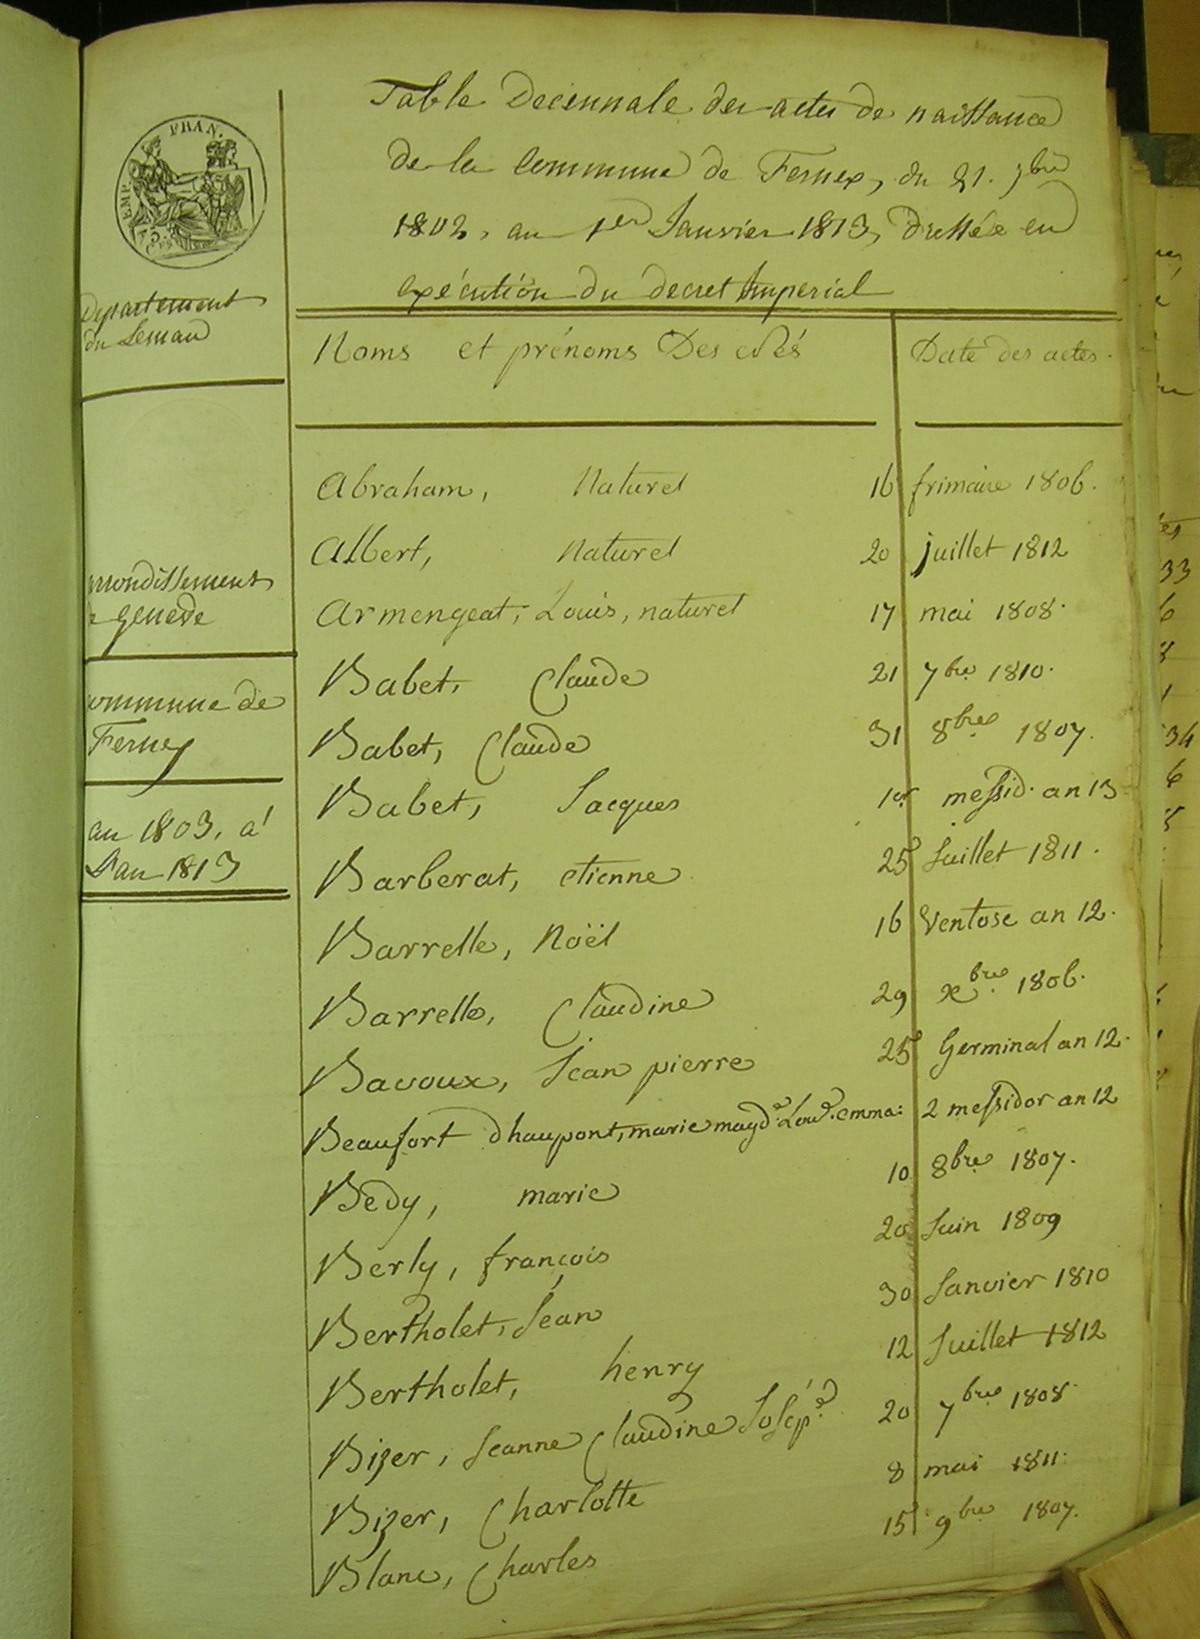 Table Decennale des actes de naissance
de la Commune de Fernex, du 21. 7bre
1802, au 1er Janvier 1813, Dressée en
exécution du decret Imperial
FRAN.
EMP.
75
Département
du Leman
arrondissement
de geneve
Commune de
Ferney
an 1803, á
L'an 1813
Noms et prénoms Des
Date des actes.
Abraham, Naturel 16 frimaire 1806.
Albert, Naturel 20 juillet 1812
Armengeat, Louis, naturel 17 mai 1808.
Babet, Claude 21 7bre 1810.
Babet, Claude 31 8bre 1807.
Babet, Jacques 1er messid. an 13
Barberat, etienne 25 Juillet 1811.
Barrelle, Noël 16 Ventose an 12.
Barrelle, Claudine 29 xbre 1806.
Bavoux, Jean pierre 25 Germinal an 12.
Beaufort dhaupont, marie magd.e Lou.e emma: 2 messidor an 12
Bedy, marie 10 8bre 1807.
Berly, françois 20 Juin 1809
Bertholet, Jean 30 Janvier 1810
Bertholet, henry 12 Juillet 1812
Bizer, Jeanne Claudine Josép.e 20 7bre 1808.
Bizer, Charlotte 8 mai 1811.
Blanc, Charles 15 9bre 1807.